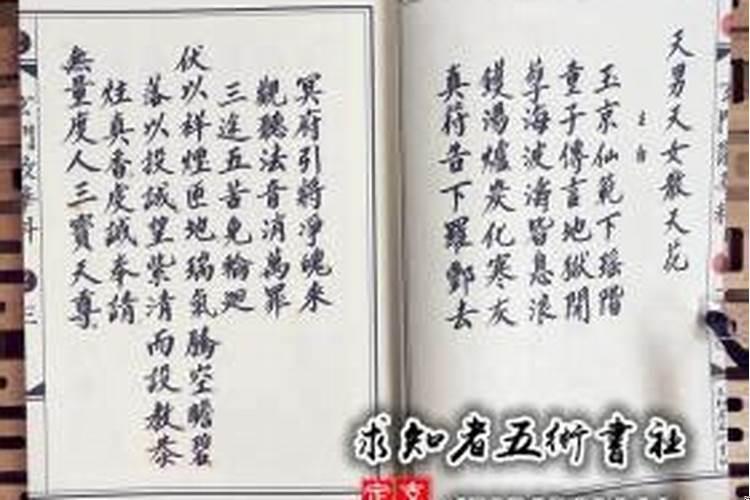 天男天女散天花
主白
玉京仙範下瑤階
童子傳言地獄開
孽海波濤皆息浪
鑊湯爐炭化寒灰
真符告下羅酆去
冥府引將淨魄來
觀聽法音消萬罪
三途五苦免輪迴
伏以祥煙匝地瑞氣騰空瞻碧
落以投誠望紫清而設教恭
炷真香虔誠奉請
無量度人三寶天尊
求知者五術書社